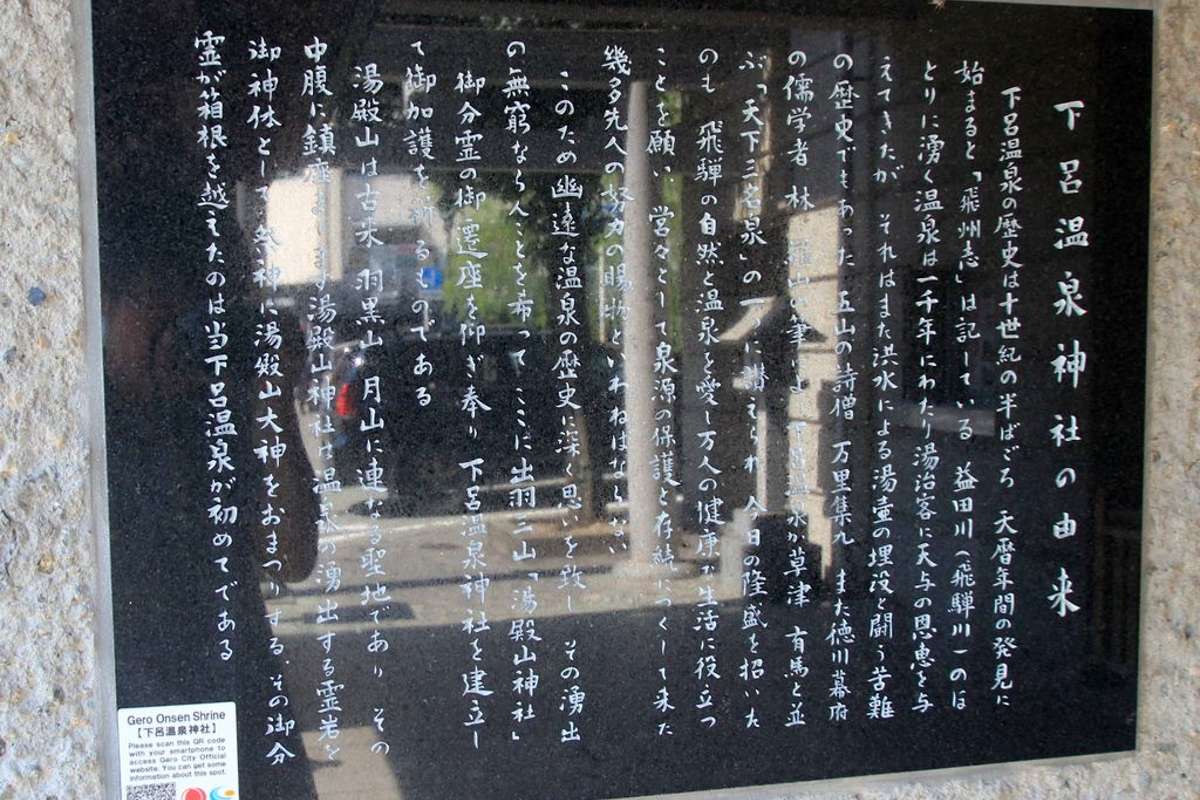 下呂温泉神社の由来
下呂温泉の歴史は十世紀の半ばごろ 天暦年間の発見に
始まると「飛州志」は記している 益田川(飛騨川)のほ
とりに湧く温泉は一千年にわたり湯治客に天与の恩恵を与
えてきたが それはまた洪水による湯壷の埋没と闘う苦難
の歴史でもあった 五山の詩僧 万里集九 また徳川幕府
の儒学者 林 羅山の筆により 下呂温泉が草津 有馬と並
ぶ「天下三名泉」の一つに讃えられ 今日の隆盛を招いた
のも 飛騨の自然と温泉を愛し万人の健康な生活に役立つ
ことを願い 営々として泉源の保護と存続につくして来た
幾多先人の努力の賜物といわねばならない
このため幽遠な温泉の歴史に深く思いを致し その湧出
の無窮ならんことを希って ここに出羽三山「湯殿山神社」
御分霊の御遷座を仰ぎ奉り 下呂温泉神社を建立し
て御加護を祈るものである
湯殿山は古来 羽黒山 月山に連なる聖地であり その
中腹に鎮座まします湯殿山神社は温泉の湧出する霊岩を
御神体として 祭神に湯殿山大神をおまつりする その御分
霊が箱根を越えたのは当下呂温泉が初めてである
Gero Onsen Shrine
【下呂温泉神社】
Please scan this QR code
with your smartphone to
access Gero City Official
website. You can get some
information about this spot.